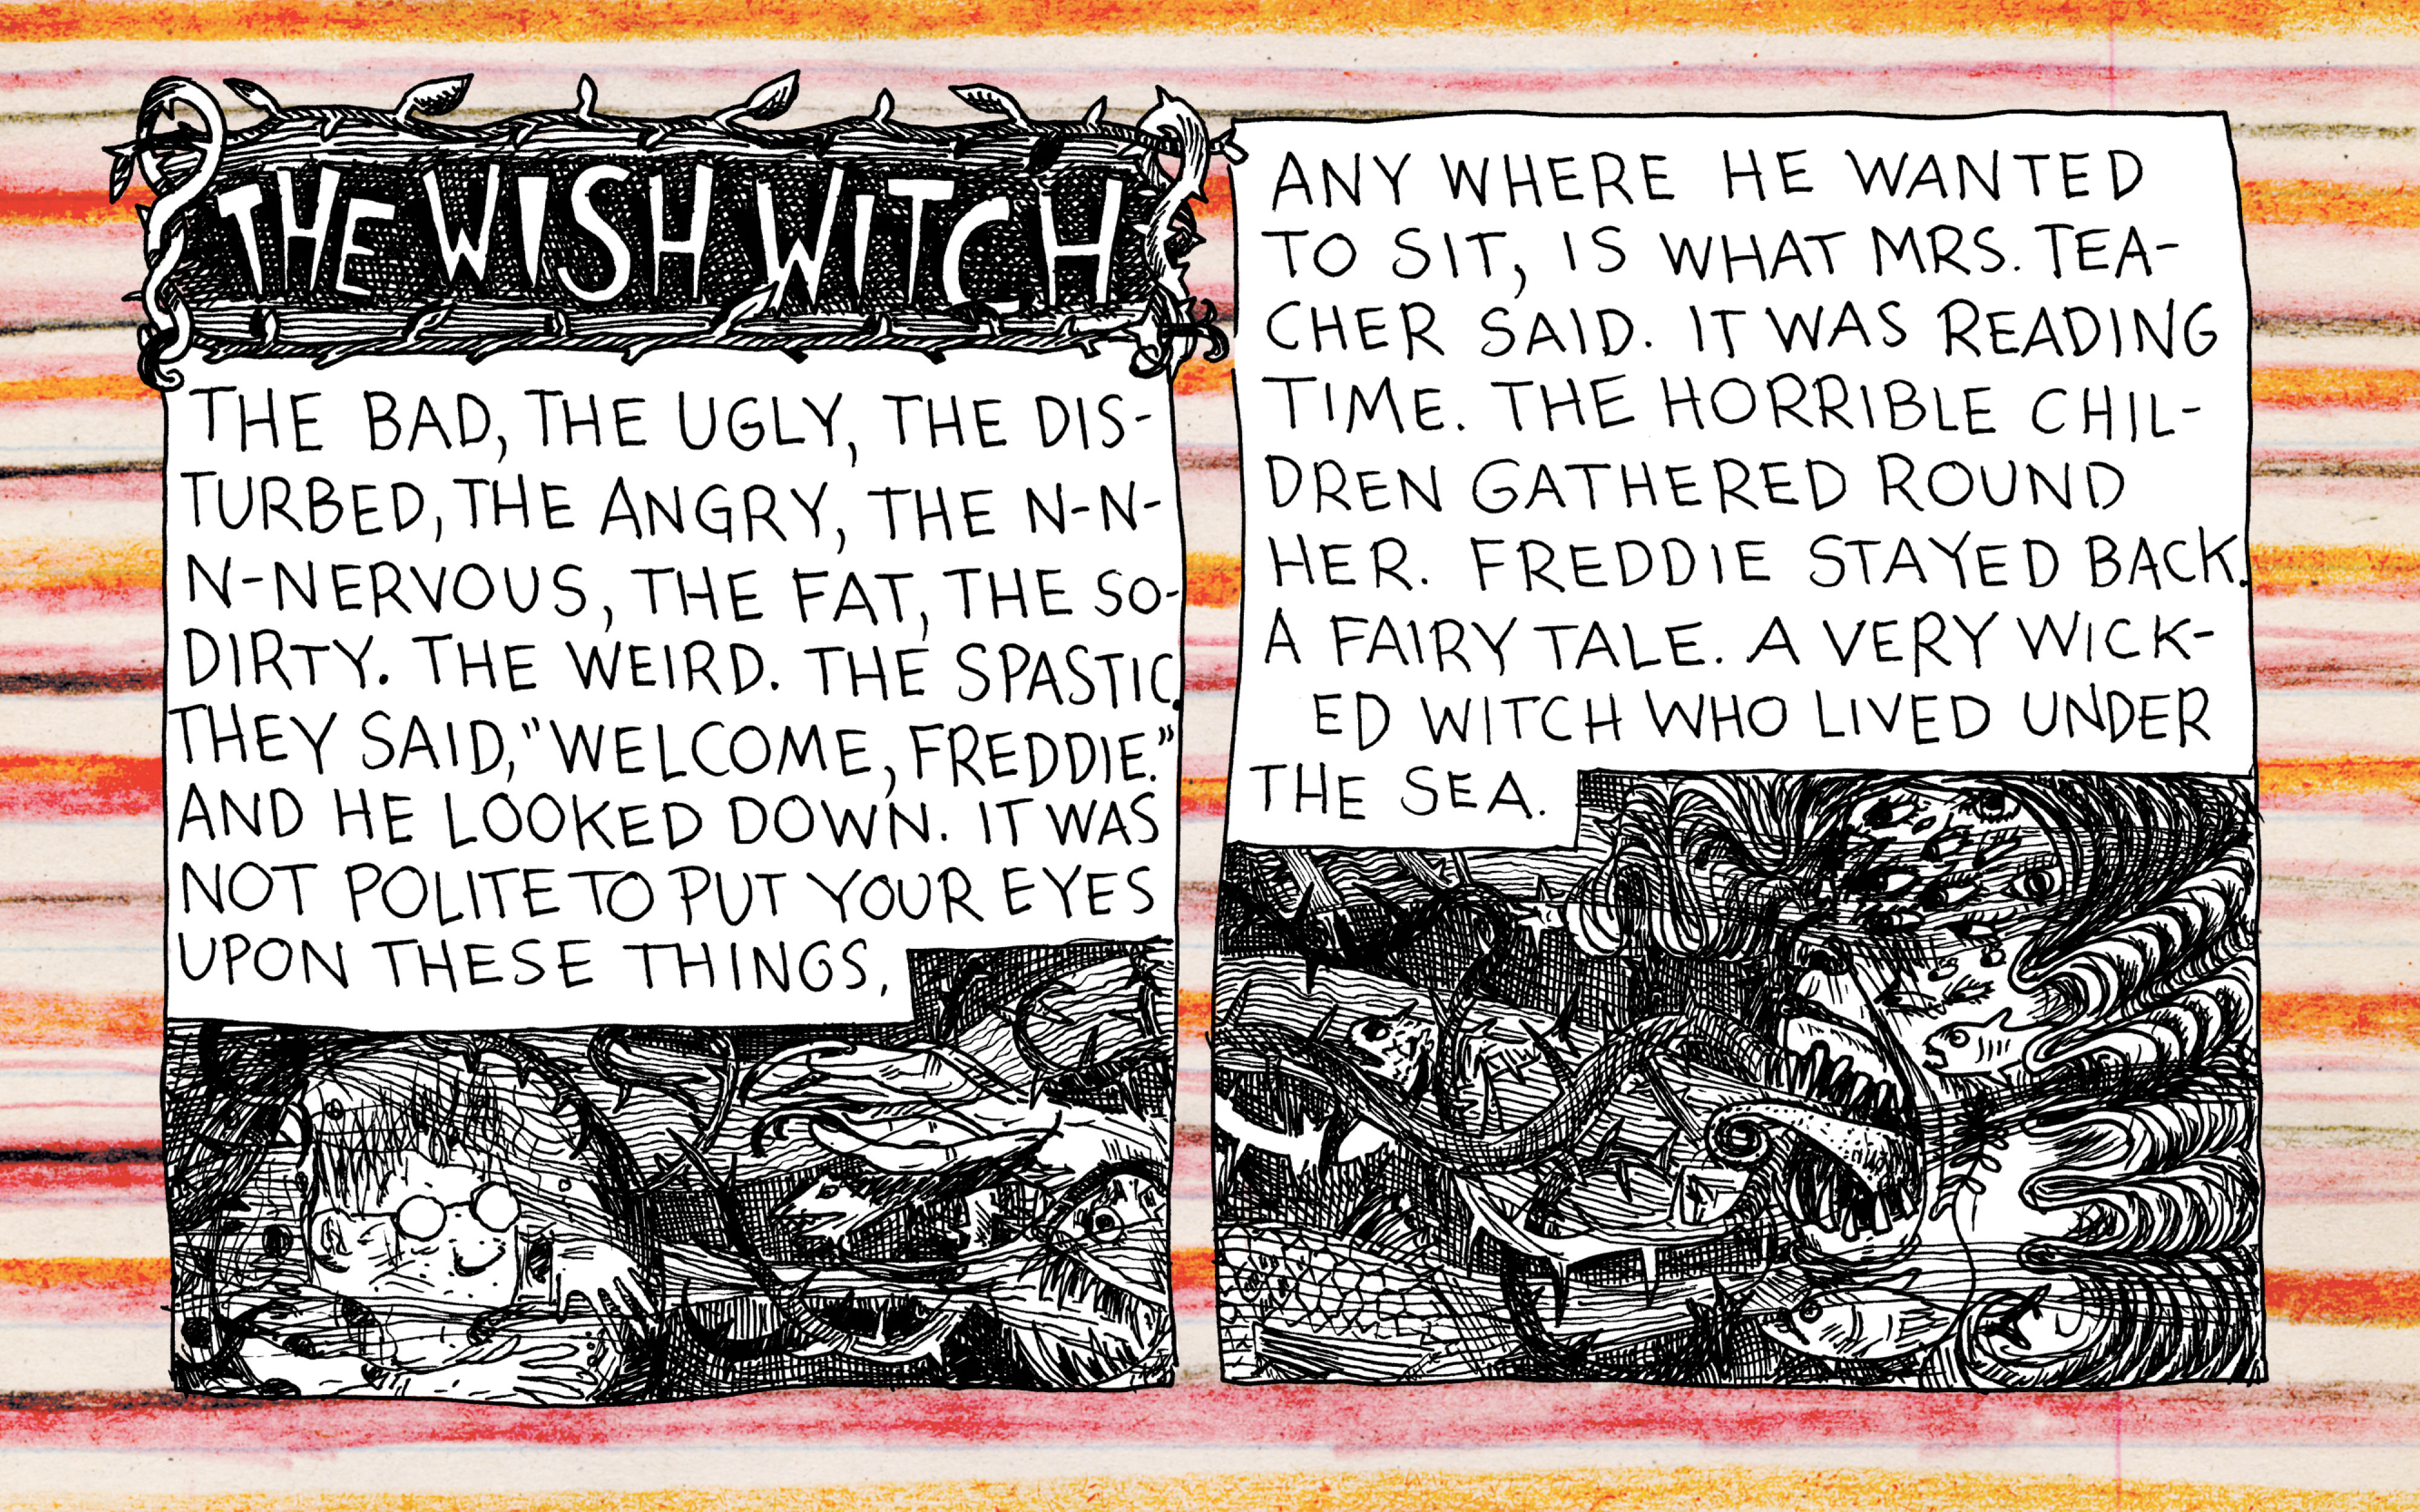 THE WISH WITCH
THE BAD, THE UGLY, THE DIS-
TURBED, THE ANGRY, THE N-N-
N-NERVOUS, THE FAT, THE SO-
DIRTY. THE WEIRD. THE SPASTIC.
THEY SAID, "WELCOME, FREDDIE."
AND HE LOOKED DOWN. IT WAS
NOT POLITE TO PUT YOUR EYES
UPON THESE THINGS,
ANY WHERE HE WANTED
TO SIT, IS WHAT MRS. TEA-
CHER SAID. IT WAS READING
TIME. THE HORRIBLE CHIL-
DREN GATHERED ROUND
HER. FREDDIE STAYED BACK.
A FAIRY TALE. A VERY WICK-
ED WITCH WHO LIVED UNDER
THE SEA.